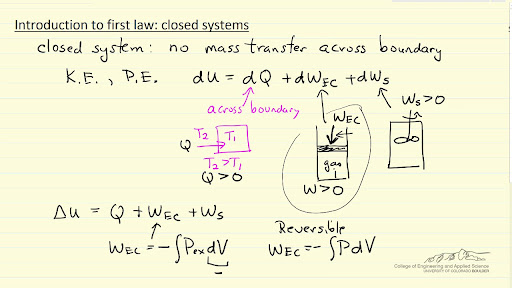 Introduction to first law: closed systems
closed system: no mass transfer across boundary
K.E., P.E. dU = dQ + dW_EC + dW_S
across boundary
W_S > 0
W_EC
Q T_2 T_1
T_2 > T_1
Q > 0
gas
W > 0
ΔU = Q + W_EC + W_S
W_EC = -∫P_ex dV
Reversible
W_EC = -∫PdV
College of Engineering and Applied Science
UNIVERSITY OF COLORADO BOULDER